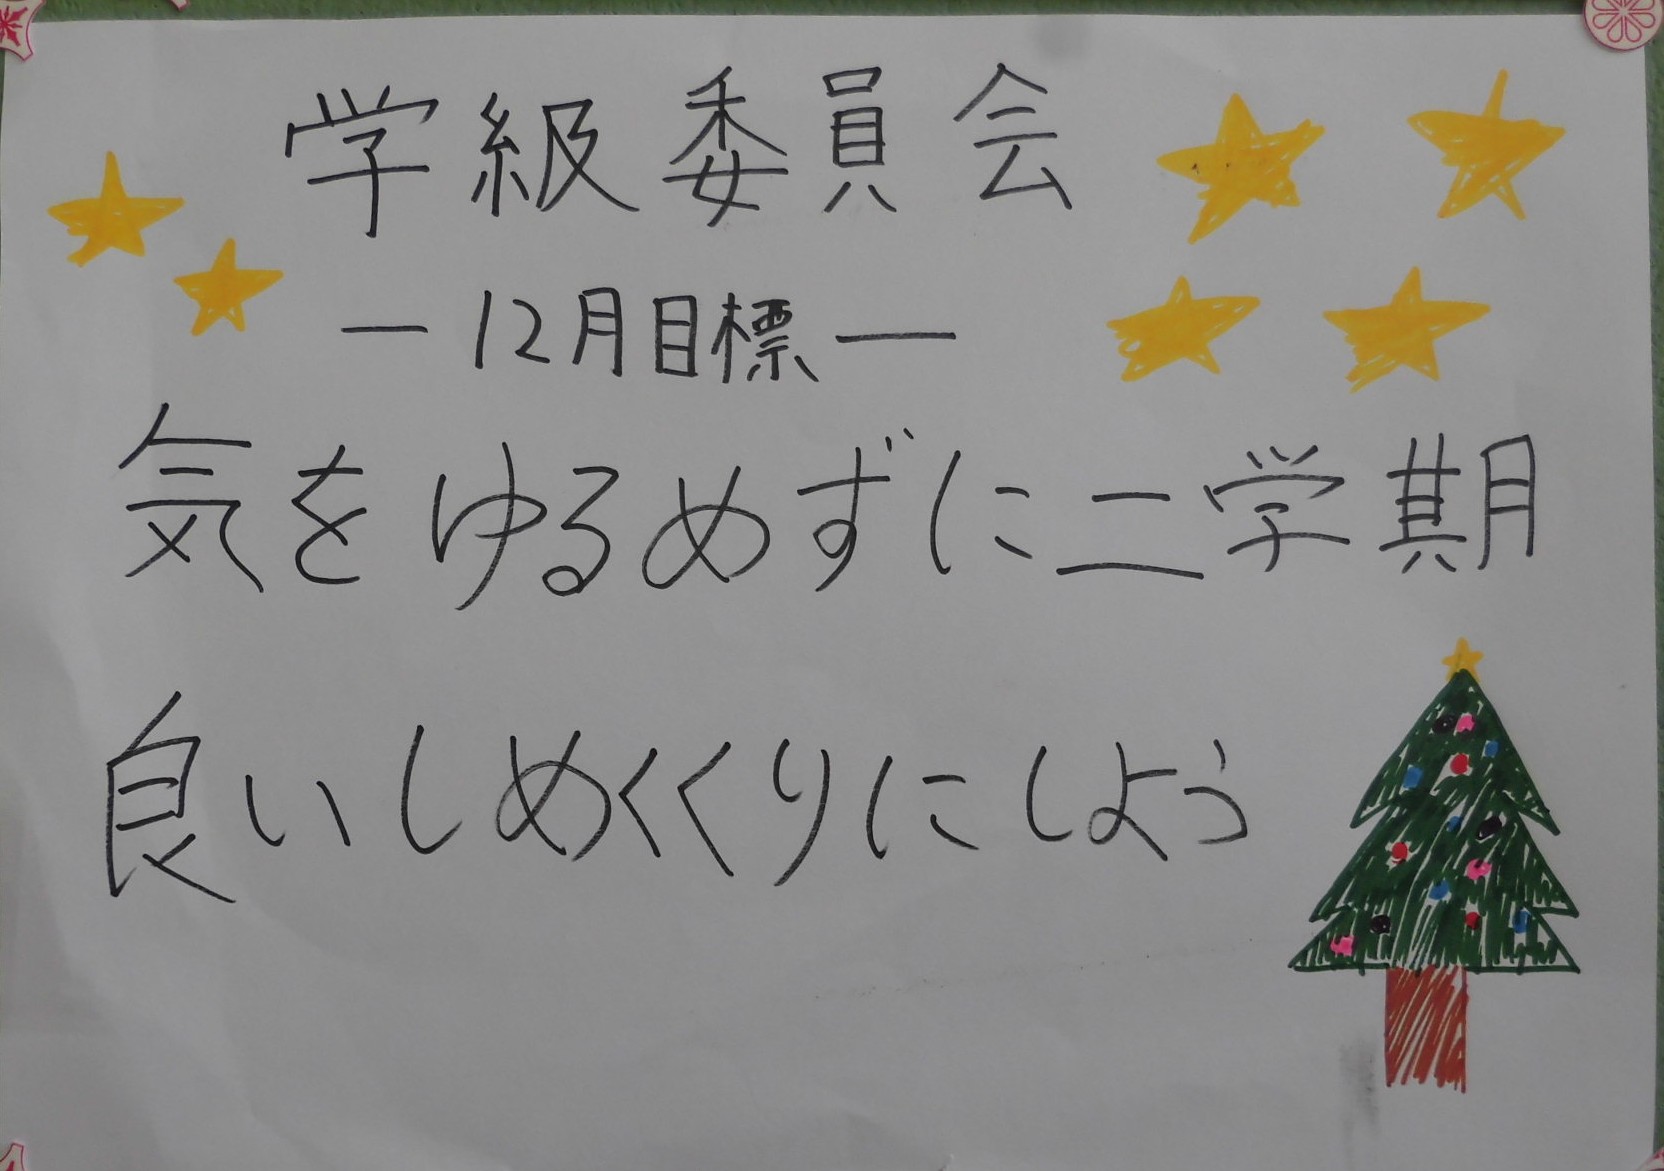 学級委員会
－12月目標－
気をゆるめずに二学期
良いしめくくりにしよう